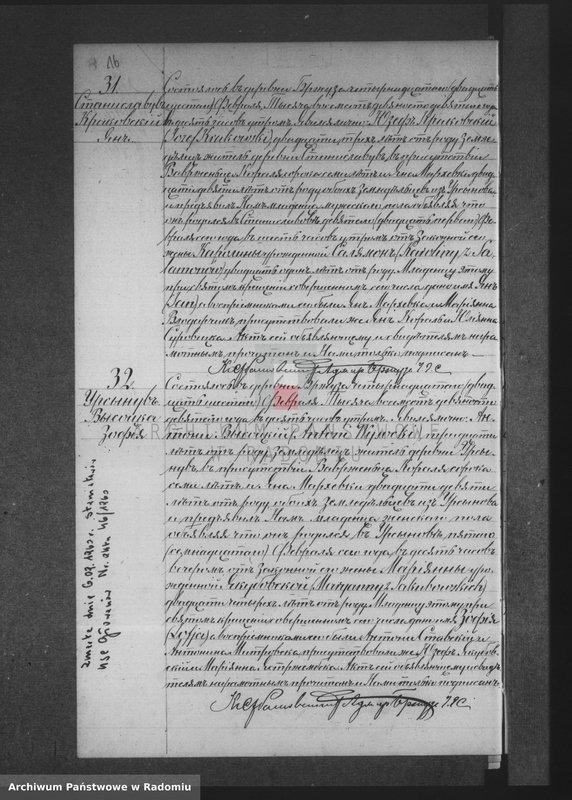 16
31.
Станиславувъ
Краковскій
Янъ.
Состоялось въ деревни Брудза четырнадцатаго (двадцать
шестаго) Февраля Тысяча восемьсотъ девяносто девятаго года
въ десять часовъ утромъ. Явился лично Юзефъ Краковскій
(Józef Krakowski) двадцати трехъ лѣтъ отъ роду земле-
дѣлецъ житель деревни Станиславувъ, въ присутствіи
Ваврженьца Кораля сорока семи лѣтъ и Яна Маржевки двад-
цати девяти лѣтъ отъ роду обоихъ Земледѣльцевъ изъ Урсынова
и предъявилъ Намъ младенца мужескаго пола объявляя что
онъ родился въ Станиславовѣ девятаго (двадцать перваго) Фе-
враля сего года въ шесть часовъ утромъ отъ Законной его
жены
двадцати одинъ лѣтъ отъ роду. Младенцу этому
при святомъ крещеніи совершенномъ сего числа дано имя Янъ
(Jan) а воспріемниками его были Янъ Маржевка и Маріянна
присутствовали же Янъ Кораль и Юлянна
Актъ сей объявляющему и свидѣтелямъ негра-
мотнымъ прочитанъ и Нами только подписанъ.
32.
Урсынувъ
Высоцка
Зофія
Состоялось въ деревни Брудза четырнадцатаго (двад-
цать шестаго) Февраля Тысяча восемьсотъ девяносто
девятаго года въ десять часовъ утромъ. Явился лично Ан-
тоній Высоцкій (Antoni Wysocki) тридцати
лѣтъ отъ роду Земледѣлецъ житель деревни Урсы-
нувъ въ присутствіи Ваврженьца Кораля сорока
семи лѣтъ и Яна Маржевки двадцати девяти
лѣтъ отъ роду обоихъ Земледѣльцевъ изъ Урсынова
и предъявилъ Намъ младенца женскаго пола
объявляя что онъ родился въ Урсыновѣ пятаго
(семнадцатаго) Февраля сего года въ десять часовъ
вечеромъ отъ Законной его жены Маріянны уро-
жденной Якубовской (Maryanny z Jakubowskich)
двадцати четырехъ лѣтъ отъ роду. Младенцу этому при
святомъ крещеніи совершенномъ сего числа дано имя Зофія
(Zofia) а воспріемниками его были Антоній Ставскій и
Антонина присутствовали же Юзефъ Якубов-
скій и Маріянна Актъ сей объявляющему и свидѣ-
телямъ неграмотнымъ прочитанъ и Нами только подписанъ
zmarła dnia 6.09.1960r.
USC Nr. aktu 46/1960
ARCHIWUM PAŃSTWOWE
W RADOMIU
Archiwum Państwowe w Radomiu